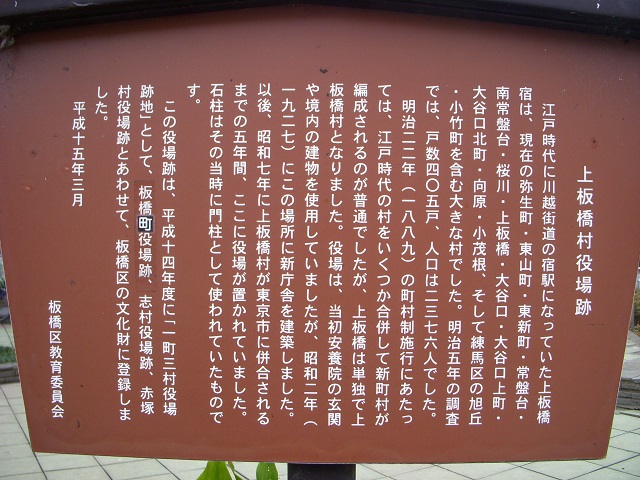 上板橋村役場跡
江戸時代に川越街道の宿駅になっていた上板橋
宿は、現在の弥生町・東山町・東新町・常盤台・
南常盤台・桜川・上板橋・大谷口・大谷口上町・
大谷口北町・向原・小茂根、そして練馬区の旭丘
・小竹町を含む大きな村でした。明治五年の調査
では、戸数四〇五戸、人口は二三七六人でした。
明治二二年（一八八九）の町村制施行にあたっ
ては、江戸時代の村をいくつか合併して新町村が
編成されるのが普通でしたが、上板橋は単独で上
板橋村となりました。役場は、当初安養院の玄関
や境内の建物を使用していましたが、昭和二年（
一九二七）にこの場所に新庁舎を建築しました。
以後、昭和七年に上板橋村が東京市に併合される
までの五年間、ここに役場が置かれていました。
石柱はその当時に門柱として使われていたもので
す。
この役場跡は、平成十四年度に「一町三村役場
跡地」として、板橋町役場跡、志村役場跡、赤塚
村役場跡とあわせて、板橋区の文化財に登録しま
した。
平成十五年三月
板橋区教育委員会